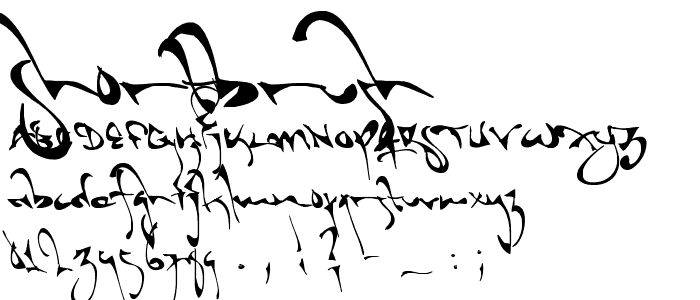 ABCDEFGHIJKLMNOPQRSTUVWXYZ
abcdefghijklmnopqrstuvwxyz
0123456789 . , ! ? - _ : ;